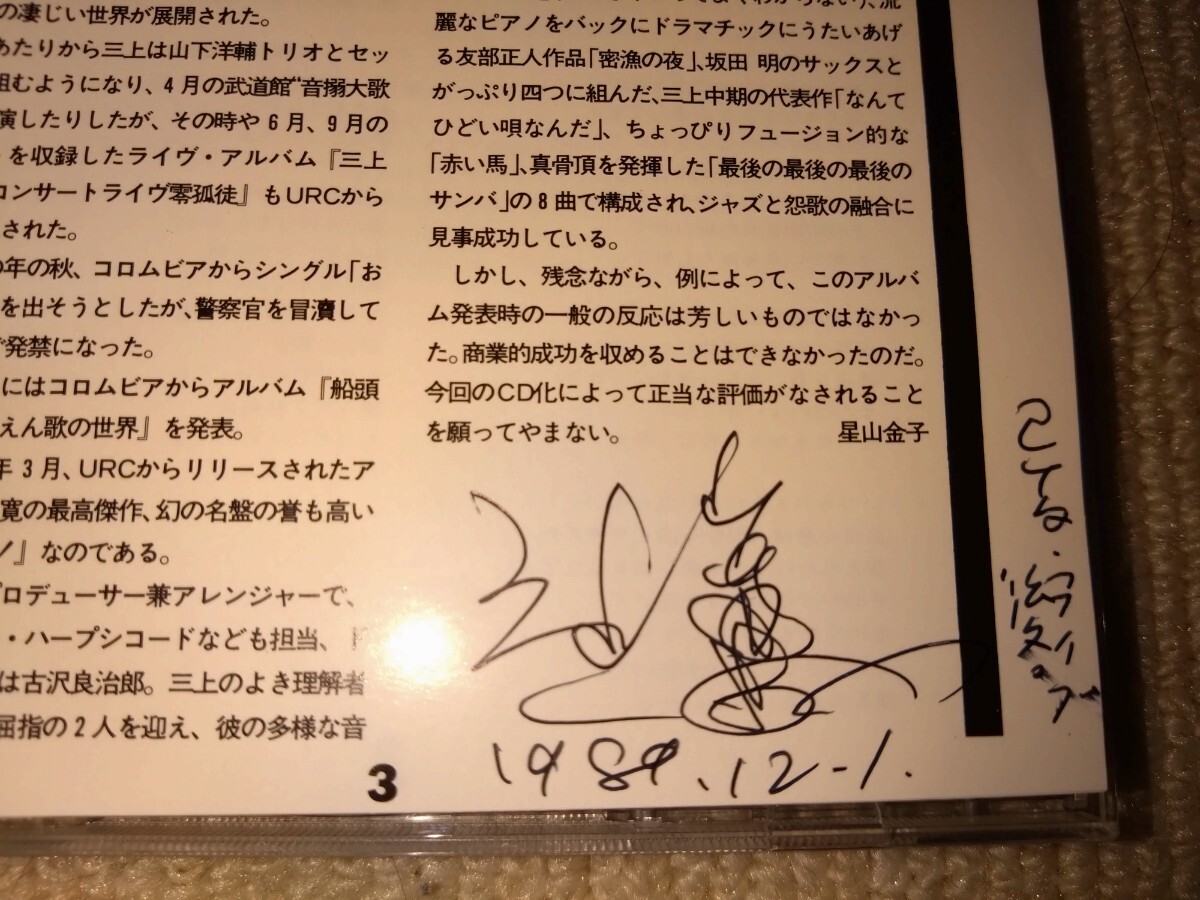 の凄じい世界が展開された。
あたりから三上は山下洋輔トリオとセッ
組むようになり、4月の武道館“音搦大歌
演したりしたが、その時や6月、9月の
を収録したライヴ・アルバム『三上
コンサートライヴ零孤徒』もURCから
された。
年の秋、コロムビアからシングル「お
を出そうとしたが、警察官を冒瀆して
発禁になった。
にはコロムビアからアルバム『船頭
えん歌の世界』を発表。
年3月、URCからリリースされたア
寛の最高傑作、幻の名盤の誉も高い
』なのである。
プロデューサー兼アレンジャーで、
・ハープシコードなども担当、
は古沢良治郎。三上のよき理解者
屈指の2人を迎え、彼の多様な音
麗なピアノをバックにドラマチックにうたいあげ
る友部正人作品「密漁の夜」、坂田 明のサックスと
がっぷり四つに組んだ、三上中期の代表作「なんて
ひどい唄なんだ」、ちょっぴりフュージョン的な
「赤い馬」、真骨頂を発揮した「最後の最後の最後の
サンバ」の8曲で構成され、ジャズと怨歌の融合に
見事成功している。
しかし、残念ながら、例によって、このアルバ
ム発表時の一般の反応は芳しいものではなかっ
た。商業的成功を収めることはできなかったのだ。
今回のCD化によって正当な評価がなされること
を願ってやまない。 星山金子
1989.12-1.
3